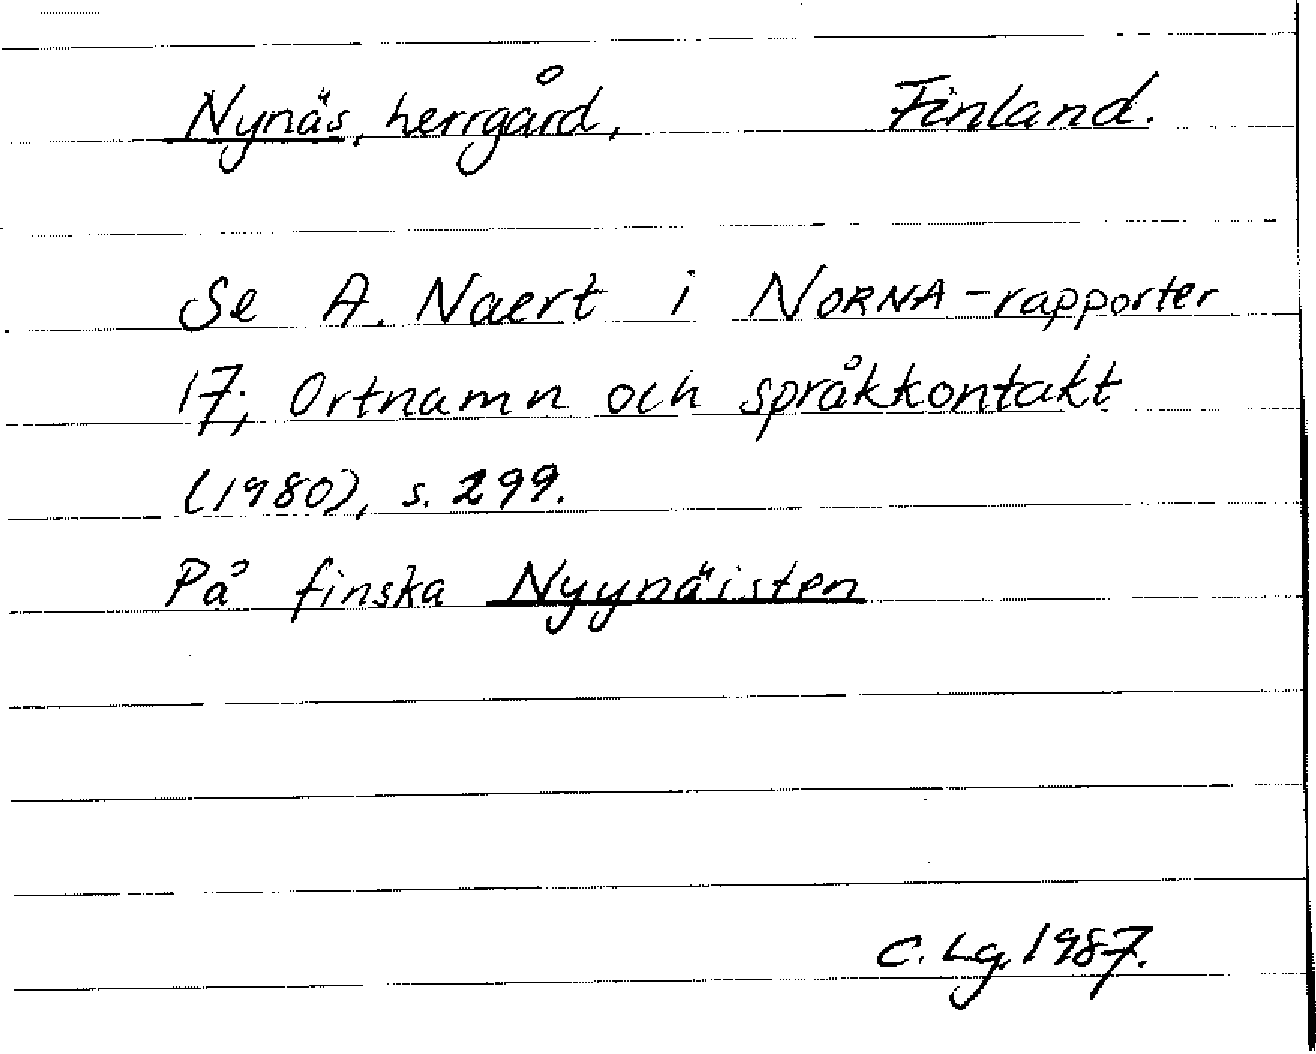 Nynäs, herrgård, Finland.
Se A. Naert i NORNA-rapporter
17; Ortnamn och språkkontakt
(1980), s. 299.
På finska Nyynäisten
C. Lg. 1987.